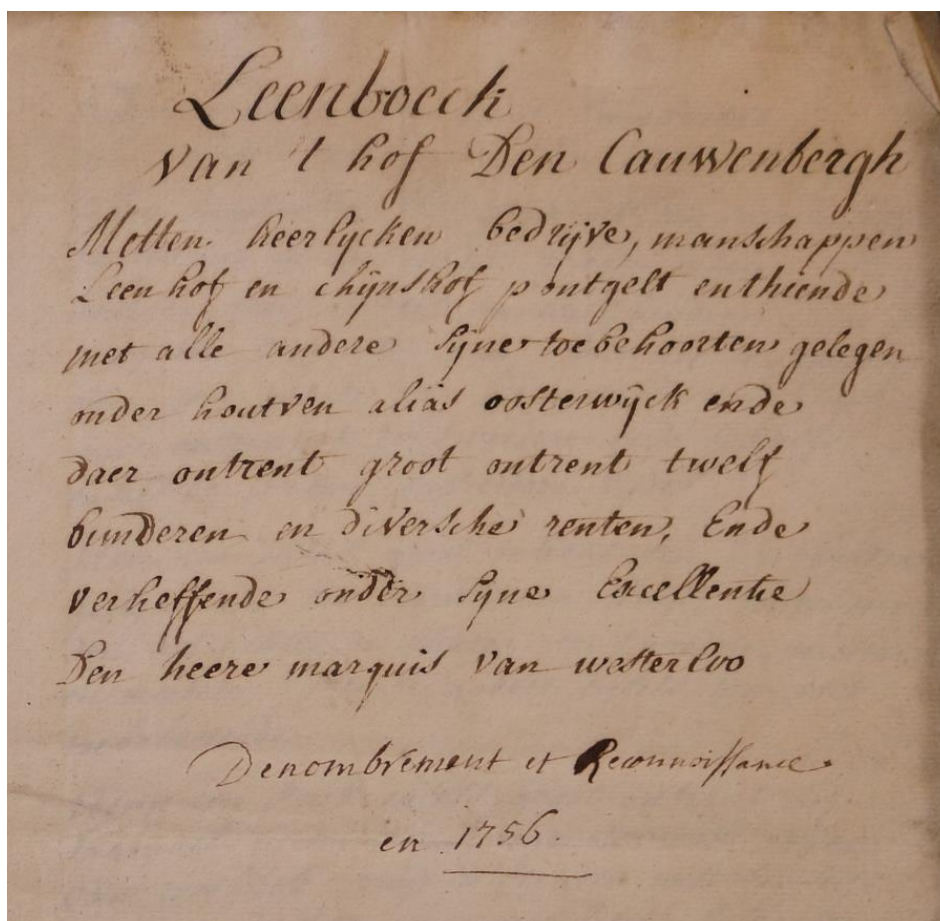 Leenboeck
van 't hof Den Cauwenbergh
Metten heerlycken bedrijve, manschappen
Leenhof en chijnshof pontgelt en thiende
met alle andere sijne toebehoorten gelegen
onder houtven alias oosterwijck ende
daer ontrent groot ontrent twelf
bunderen en diversche renten, Ende
verheffende onder syne Excellentie
Den heere marquis van westerloo
Denombrement et Reconnoissance
en 1756.